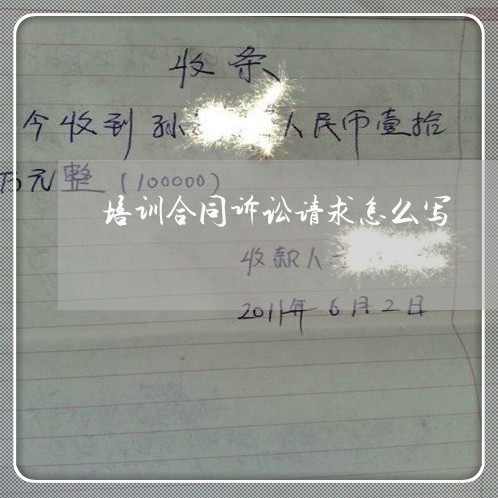 收条
今收到孙 人民币壹拾
万元整(100000)
培训合同诉讼请求怎么写
收款人
2011年6月2日